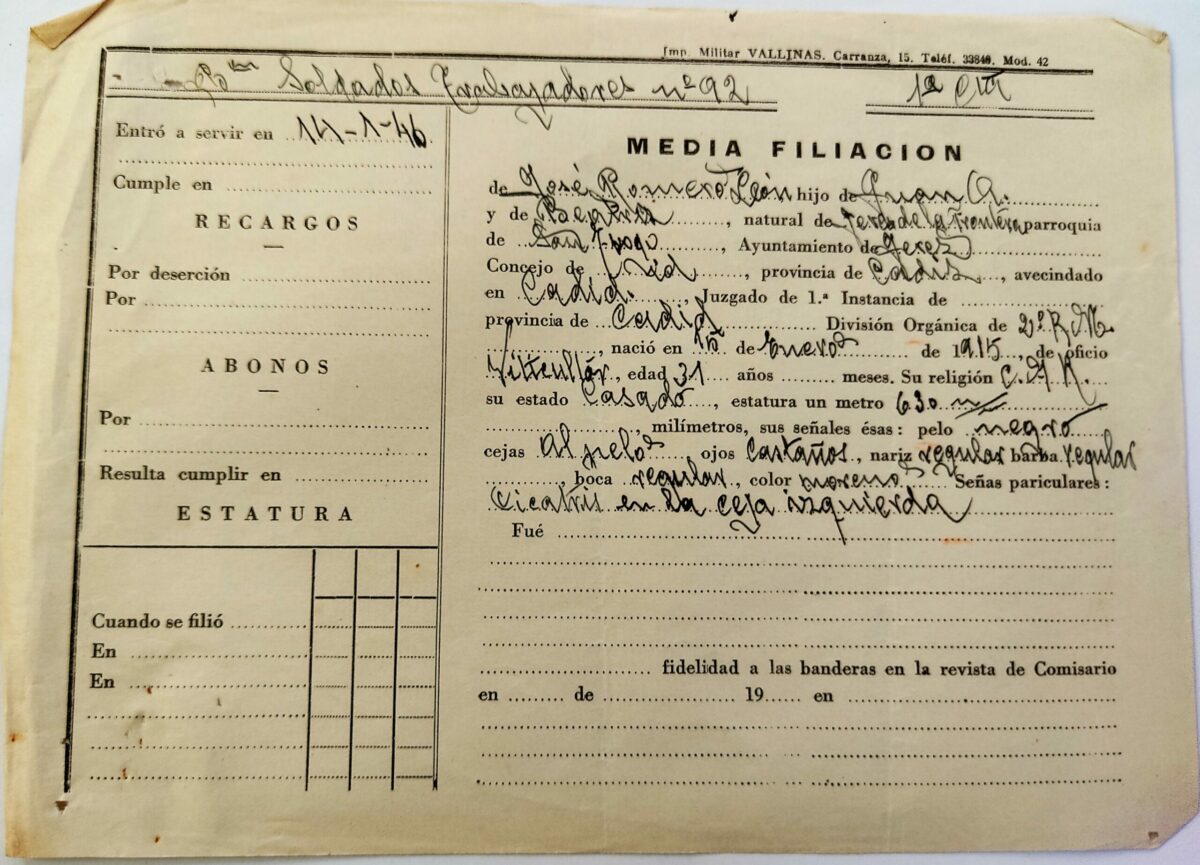 Imp. Militar VALLINAS. Carranza, 15. Teléf. 33848. Mod. 42
Soldados Trabajadores nº 92 1ª Cía
Entró a servir en 14-1-46
Cumple en
RECARGOS
Por deserción
Por
ABONOS
Por
Resulta cumplir en
ESTATURA
Cuando se filió
En
En
MEDIA FILIACION
de José Romero León hijo de Juan A.
y de , natural de Jerez de la Frontera parroquia
de San , Ayuntamiento de Jerez
Concejo de , provincia de Cadiz , avecindado
en Cadid. , Juzgado de 1.ª Instancia de
provincia de División Orgánica de 2ª R.M.
, nació en 15 de Enero de 1915 , de oficio
, edad 31 años meses. Su religión C.A.R.
su estado Casado , estatura un metro 630 m/
, milímetros, sus señales ésas: pelo negro
cejas Al pelo ojos Castaños , nariz regular barba regular
, boca regular , color moreno Señas pariculares:
Cicatris en la ceja izquierda
Fué
fidelidad a las banderas en la revista de Comisario
en de 19 en